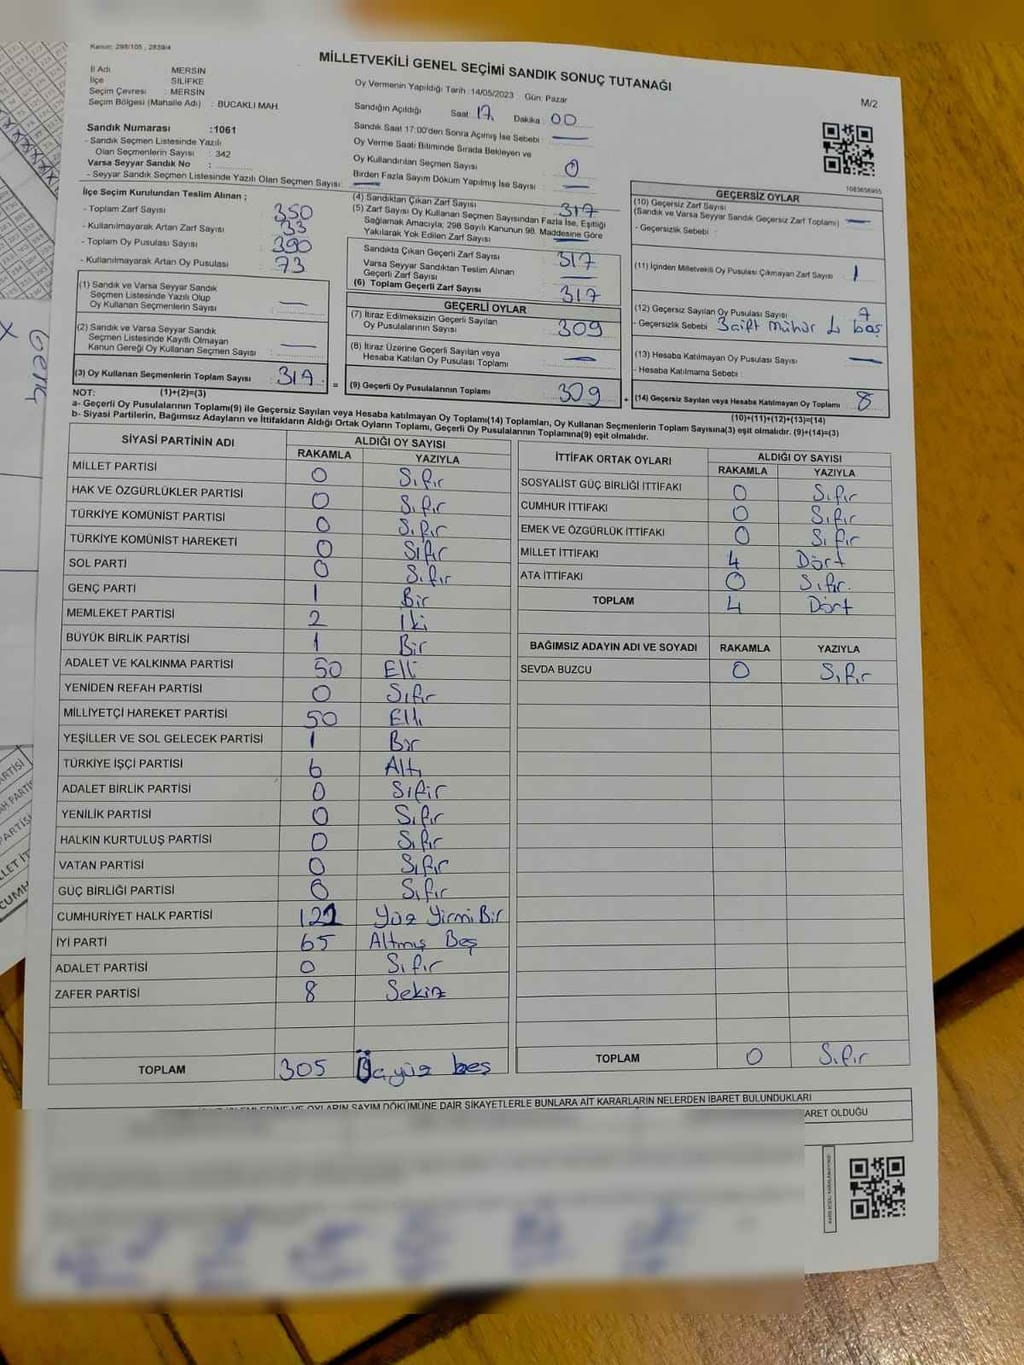 Kanun: 298/105 , 2839/4
MİLLETVEKİLİ GENEL SEÇİMİ SANDIK SONUÇ TUTANAĞI
M/2
İl Adı MERSİN
İlçe SİLİFKE
Seçim Çevresi : MERSİN
Seçim Bölgesi (Mahalle Adı) : BUCAKLI MAH.
Sandık Numarası :1061
- Sandık Seçmen Listesinde Yazılı
Olan Seçmenlerin Sayısı : 342
Varsa Seyyar Sandık No :
- Seyyar Sandık Seçmen Listesinde Yazılı Olan Seçmen Sayısı:
Oy Vermenin Yapıldığı Tarih :14/05/2023 Gün: Pazar
Sandığın Açıldığı Saat 17 Dakika 00
Sandık Saat 17:00'den Sonra Açılmış İse Sebebi —
Oy Verme Saati Bitiminde Sırada Bekleyen ve
Oy Kullandırılan Seçmen Sayısı 0
Birden Fazla Sayım Döküm Yapılmış İse Sayısı —
İlçe Seçim Kurulundan Teslim Alınan ;
- Toplam Zarf Sayısı : 350
- Kullanılmayarak Artan Zarf Sayısı : 33
- Toplam Oy Pusulası Sayısı : 390
- Kullanılmayarak Artan Oy Pusulası : 73
(1) Sandık ve Varsa Seyyar Sandık
Seçmen Listesinde Yazılı Olup
Oy Kullanan Seçmenlerin Sayısı : —
(2) Sandık ve Varsa Seyyar Sandık
Seçmen Listesinde Kayıtlı Olmayan
Kanun Gereği Oy Kullanan Seçmen Sayısı : —
(3) Oy Kullanan Seçmenlerin Toplam Sayısı 317
(1)+(2)=(3)
(4) Sandıktan Çıkan Zarf Sayısı : 317
(5) Zarf Sayısı Oy Kullanan Seçmen Sayısından Fazla İse, Eşitliği
Sağlamak Amacıyla; 298 Sayılı Kanunun 98. Maddesine Göre
Yakılarak Yok Edilen Zarf Sayısı : —
Sandıkta Çıkan Geçerli Zarf Sayısı : 317
Varsa Seyyar Sandıktan Teslim Alınan
Geçerli Zarf Sayısı : —
(6) Toplam Geçerli Zarf Sayısı : 317
GEÇERLİ OYLAR
(7) İtiraz Edilmeksizin Geçerli Sayılan
Oy Pusulalarının Sayısı : 309
(8) İtiraz Üzerine Geçerli Sayılan veya
Hesaba Katılan Oy Pusulası Toplamı : —
= (9) Geçerli Oy Pusulalarının Toplamı : 309
GEÇERSİZ OYLAR
1083656955
(10) Geçersiz Zarf Sayısı
(Sandık ve Varsa Seyyar Sandık Geçersiz Zarf Toplamı) : —
- Geçersizlik Sebebi :
(11) İçinden Milletvekili Oy Pusulası Çıkmayan Zarf Sayısı : 1
(12) Geçersiz Sayılan Oy Pusulası Sayısı : 7
- Geçersizlik Sebebi 3 çift mühür 4 boş
(13) Hesaba Katılmayan Oy Pusulası Sayısı : —
- Hesaba Katılmama Sebebi :
+ (14) Geçersiz Sayılan veya Hesaba Katılmayan Oy Toplamı : 8
(10)+(11)+(12)+(13)=(14)
NOT:
a- Geçerli Oy Pusulalarının Toplamı(9) ile Geçersiz Sayılan veya Hesaba katılmayan Oy Toplamı(14) Toplamları, Oy Kullanan Seçmenlerin Toplam Sayısına(3) eşit olmalıdır. (9)+(14)=(3)
b- Siyasi Partilerin, Bağımsız Adayların ve İttifakların Aldığı Ortak Oyların Toplamı, Geçerli Oy Pusulalarının Toplamına(9) eşit olmalıdır.
SİYASİ PARTİNİN ADI ALDIĞI OY SAYISI
RAKAMLA YAZIYLA
MİLLET PARTİSİ 0 Sıfır
HAK VE ÖZGÜRLÜKLER PARTİSİ 0 Sıfır
TÜRKİYE KOMÜNİST PARTİSİ 0 Sıfır
TÜRKİYE KOMÜNİST HAREKETİ 0 Sıfır
SOL PARTİ 0 Sıfır
GENÇ PARTİ 1 Bir
MEMLEKET PARTİSİ 2 İki
BÜYÜK BİRLİK PARTİSİ 1 Bir
ADALET VE KALKINMA PARTİSİ 50 Elli
YENİDEN REFAH PARTİSİ 0 Sıfır
MİLLİYETÇİ HAREKET PARTİSİ 50 Elli
YEŞİLLER VE SOL GELECEK PARTİSİ 1 Bir
TÜRKİYE İŞÇİ PARTİSİ 6 Altı
ADALET BİRLİK PARTİSİ 0 Sıfır
YENİLİK PARTİSİ 0 Sıfır
HALKIN KURTULUŞ PARTİSİ 0 Sıfır
VATAN PARTİSİ 0 Sıfır
GÜÇ BİRLİĞİ PARTİSİ 0 Sıfır
CUMHURİYET HALK PARTİSİ 121 Yüz Yirmi Bir
İYİ PARTİ 65 Altmış Beş
ADALET PARTİSİ 0 Sıfır
ZAFER PARTİSİ 8 Sekiz
TOPLAM 305 Üçyüz beş
İTTİFAK ORTAK OYLARI ALDIĞI OY SAYISI
RAKAMLA YAZIYLA
SOSYALİST GÜÇ BİRLİĞİ İTTİFAKI 0 Sıfır
CUMHUR İTTİFAKI 0 Sıfır
EMEK VE ÖZGÜRLÜK İTTİFAKI 0 Sıfır
MİLLET İTTİFAKI 4 Dört
ATA İTTİFAKI 0 Sıfır.
TOPLAM 4 Dört
BAĞIMSIZ ADAYIN ADI VE SOYADI RAKAMLA YAZIYLA
SEVDA BUZCU 0 Sıfır
TOPLAM 0 Sıfır
VE OYLARIN SAYIM DÖKÜMÜNE DAİR ŞİKAYETLERLE BUNLARA AİT KARARLARIN NELERDEN İBARET BULUNDUKLARI
ARET OLDUĞU